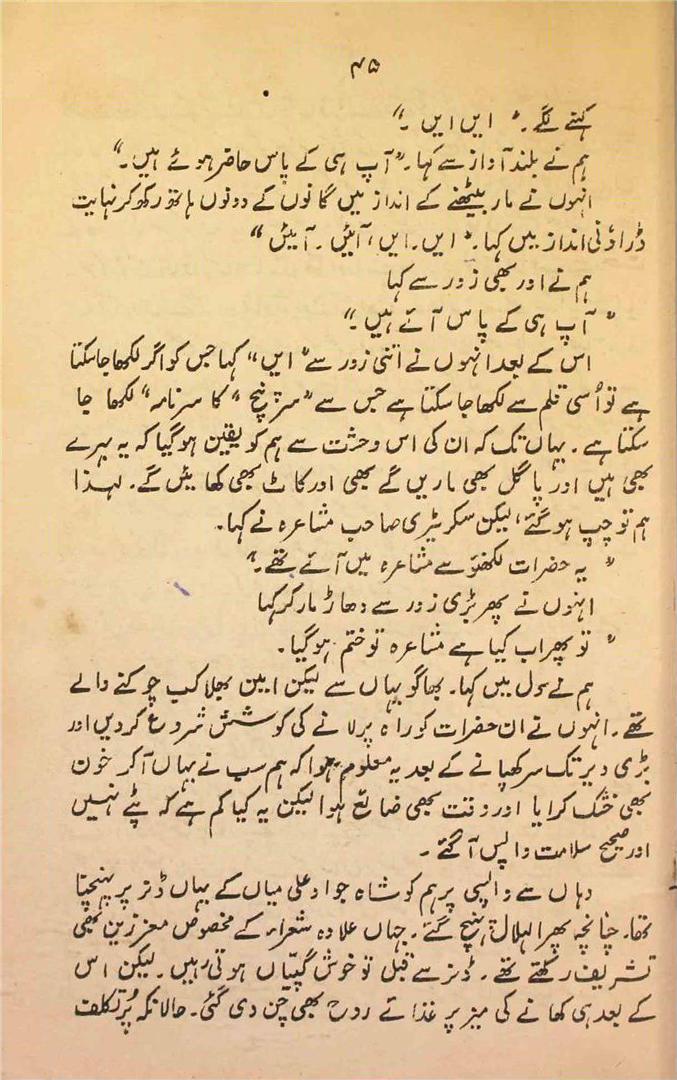 ۴۵
کہنے لگے۔ " ایں ایں ۔"
ہم نے بلند آواز سے کہا۔ "آپ ہی کے پاس حاضر ہوئے ہیں۔"
انہوں نے مار بیٹھنے کے انداز میں کانوں کے دونوں ہاتھ رکھ کر نہایت
ڈراؤنی انداز میں کہا۔ " ایں۔ ایں، آئیں ۔ آئیں "
ہم نے اور بھی زور سے کہا
" آپ ہی کے پاس آئے ہیں ۔"
اس کے بعد انہوں نے اتنی زور سے " ایں " کہا جس کو اگر لکھا جا سکتا
ہے تو اُسی قلم سے لکھا جا سکتا ہے جس سے " سرپنچ " کا سرنامہ " لکھا جا
سکتا ہے ۔ یہاں تک کہ ان کی اس وحشت سے ہم کو یقین ہو گیا کہ یہ بہرے
بھی ہیں اور پاگل بھی ماریں گے بھی اور کاٹ بھی کھائیں گے۔ لہذا
ہم تو چپ ہو گئے، لیکن سکریٹری صاحب مشاعرہ نے کہا۔
" یہ حضرات لکھنؤ سے مشاعرہ میں آئے تھے۔"
انہوں نے پھر بڑی زور سے دھاڑ مار کر کہا
" تو پھر اب کیا ہے مشاعرہ تو ختم ہو گیا۔
ہم نے دل میں کہا۔ بھاگو یہاں سے لیکن امین بھلا کب چوکنے والے
تھے۔ انہوں نے ان حضرات کو راہ پر لانے کی کوشش شروع کر دیں اور
بڑی دیر تک سر کھپانے کے بعد یہ معلوم ہوا کہ ہم سب نے یہاں آ کر خون
بھی خشک کرایا اور وقت بھی ضائع ہوا لیکن یہ کیا کم ہے کہ پٹے نہیں
اور صحیح سلامت واپس آگئے ۔
وہاں سے واپسی پر ہم کو شاہ جواد علی میاں کے یہاں ڈنر پر پہنچنا
تھا۔ چنانچہ پھر الہلال پہنچ گئے۔ جہاں علاوہ شعراء کے مخصوص معززین بھی
تشریف رکھتے تھے ۔ ڈنر سے قبل تو خوش گپیاں ہوتی رہیں ۔ لیکن اس
کے بعد ہی کھانے کی میز پر غذائے روح بھی چن دی گئی۔ حالانکہ پُرتکلف